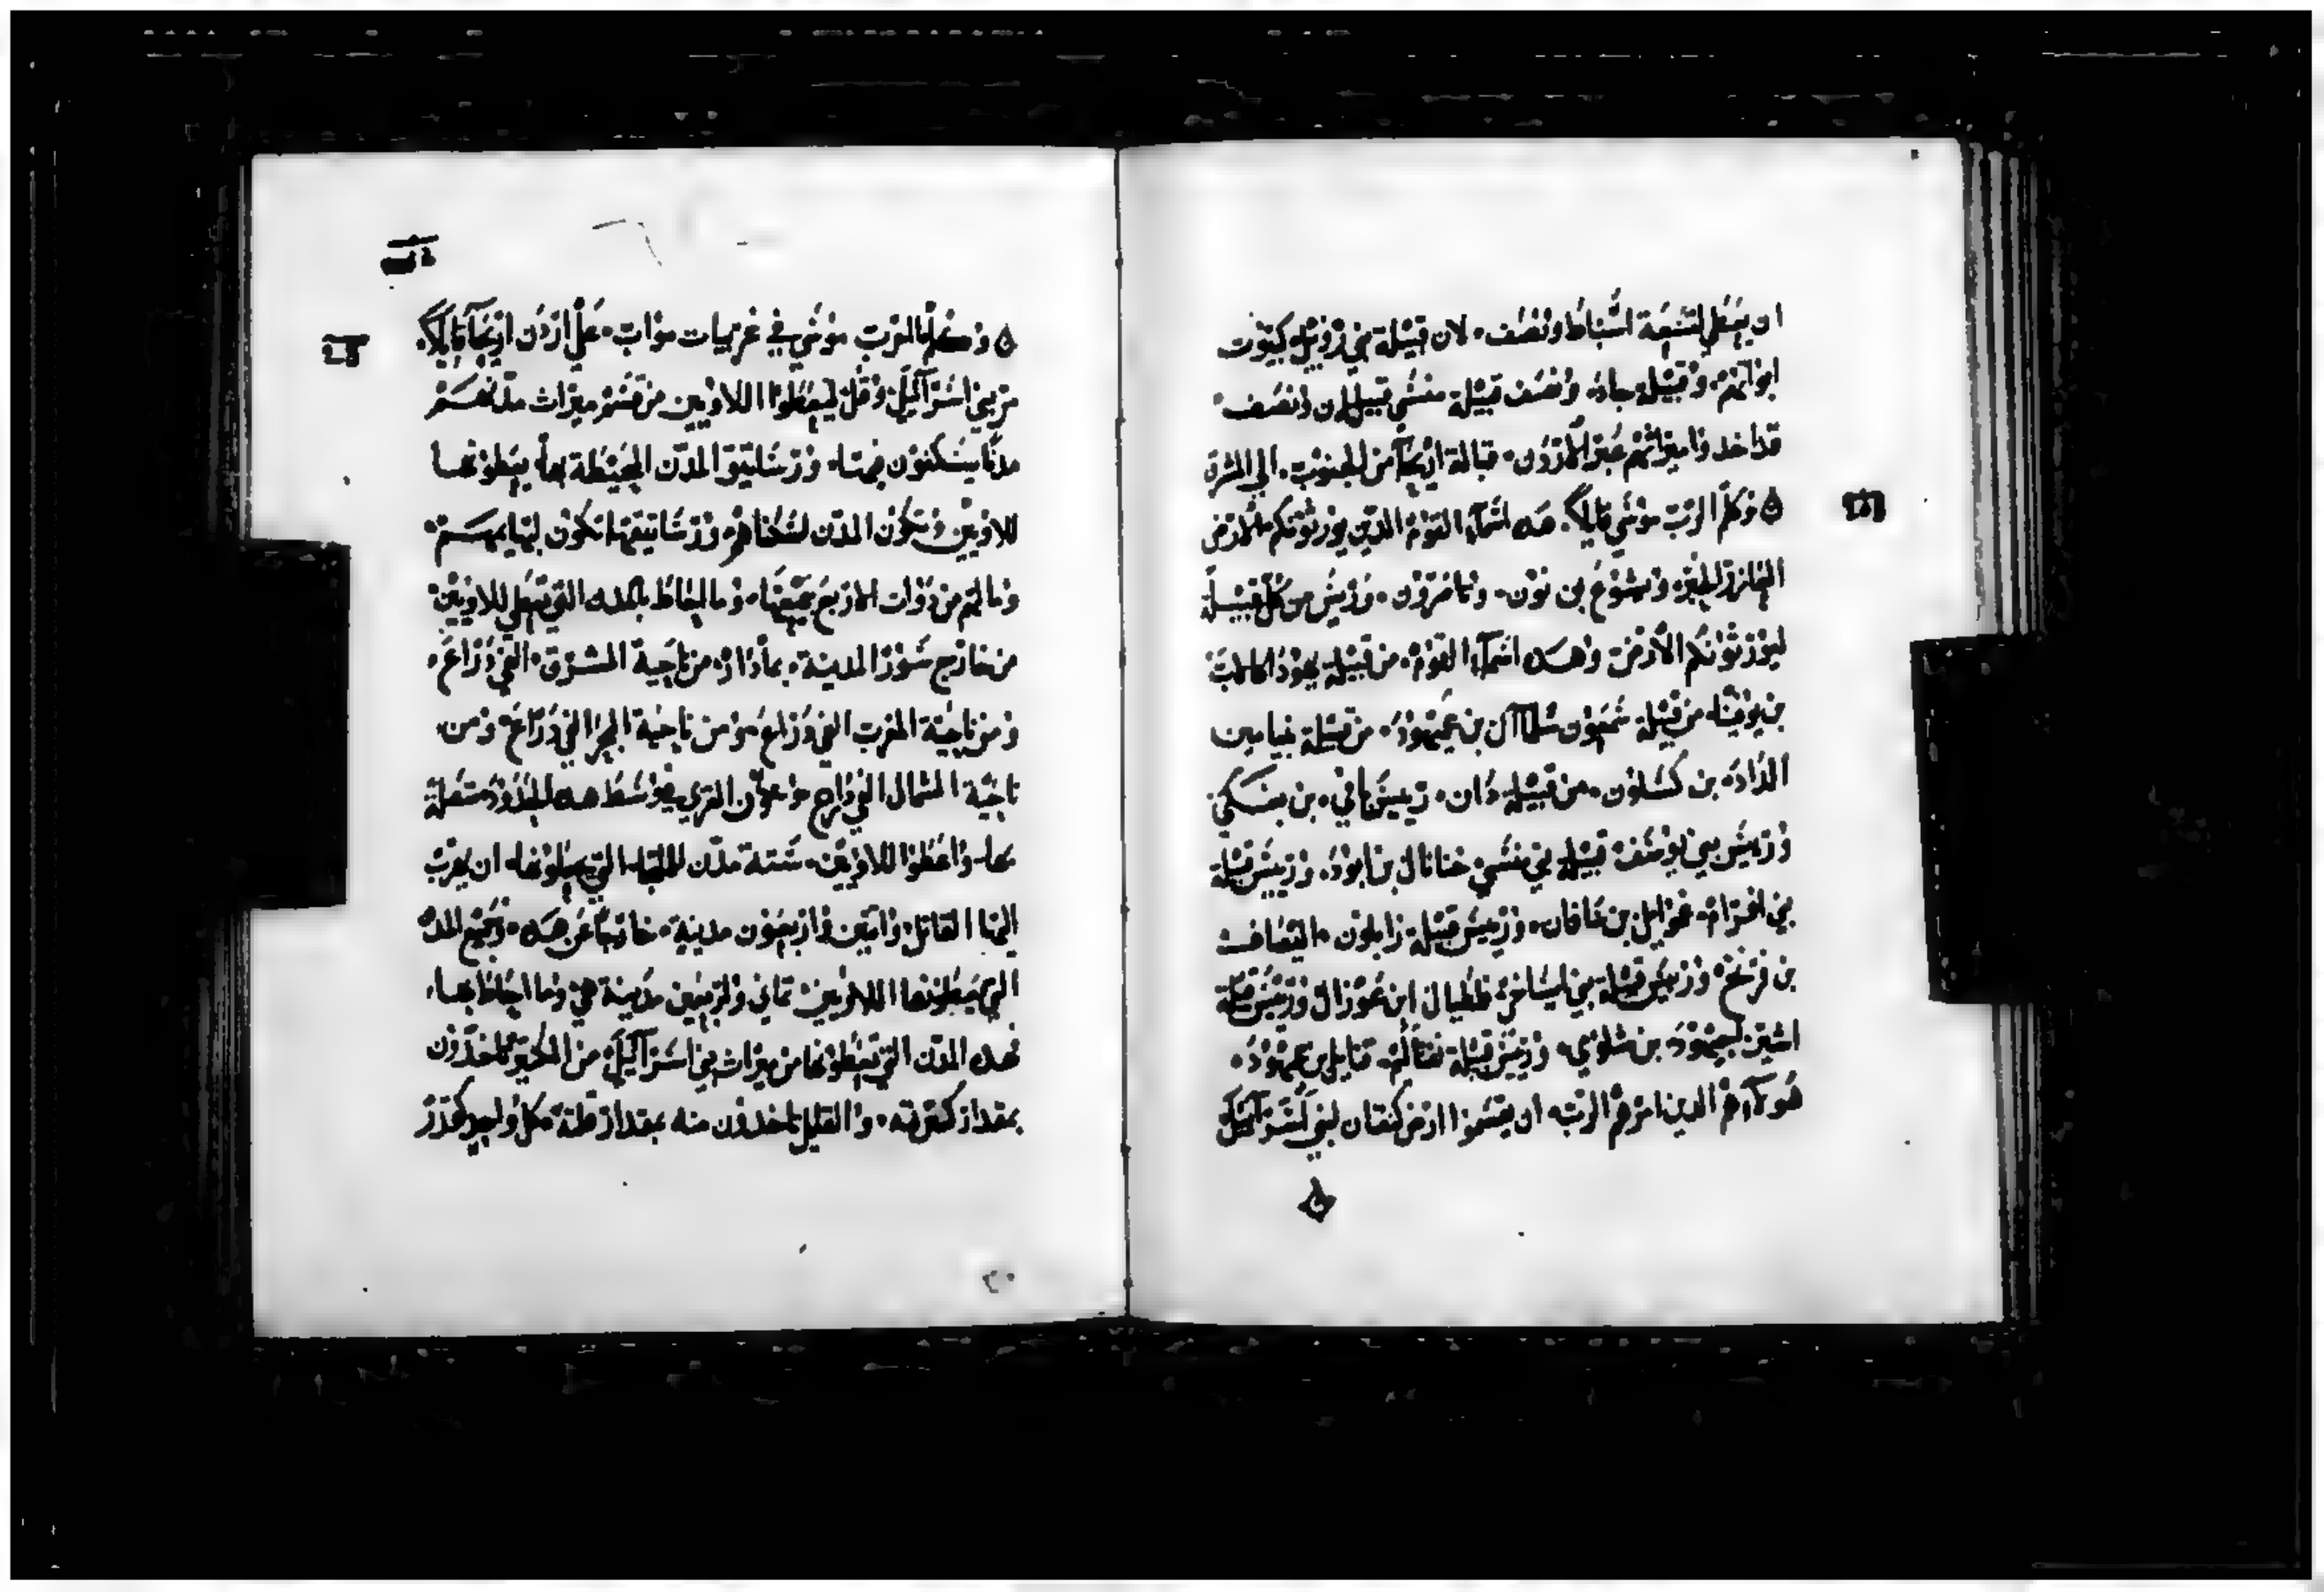 ان يعطي لتسعة اسباط ونصف. لان قبيلة بني روبيل كبيوت
ابواتهم. وقبيلة جاد. ونصف قبيلة منسي قبيلتان ونصف.
قد اخدوا ميراثهم عبر الاردن. قبالة اريحا من الجنوب. الي المشرق
وكلم الرب موسي قايلاً. هده اسماء القوم الدين يورثونكم الارض
العازر الحبر. ويشوع بن نون. وتاخدون. وريس من كل قبيلة
ليورثونكم الارض وهده اسماء القوم. من قبيلة يهودا كالب
بن يوفنا. من قبيلة شمعون بن عميهود. من قبيلة بنيامين
الداد. بن كسلون. من قبيلة دان. ريس باقي. بن
وريس بني يوسف قبيلة بني منسي حنانال بن ابود. وريس قبيلة
بني افرام. بن سافان. وريس قبيلة زابلون.
بن فرنخ. وريس قبيلة بني ايساخر. فلطيال ابن عوزال وريس قبيلة
اشير بن شلومي. وريس قبيلة نفتالم. بن عميهود.
هولاء هم الدين امرهم الرب. ان يقسموا ارض كنعان لبني اسرائيل
وكلم الرب موسي في غربيات مواب. علي اردن اريحا قايلاً.
مر بني اسرائيل وقل ليعطوا اللاويين من قسم ميراث مدنهم
مدناً يسكنون فيها. ورساتيق المدن المحيطة بها يعطونها
للاويين وتكون المدن لسكناهم ورساتيقها تكون لبهايمهم
وما لهم من دوات الاربع جميعها. وما احاط بالمدن التي تعطي للاويين
من خارج سور المدينة. بمادار. من ناحية المشرق. الفي دراع.
ومن ناحية المغرب الفي دراع ومن ناحية البحر الفي دراع. ومن
ناحية الشمال الفي دراع القري في وسط هده الحدود متصلة
بها. واعطوا اللاويين ستة مدن للملجا التي ان يهرب
اليها القاتل. واتنين واربعون مدينة. خارجاً عن هده. وجميع المدن
التي يعطونها اللاويين تمان واربعين مدينة هي وما احاط بها.
فهده المدن التي تعطونها من ميراث بني اسرائيل من الكتير تاخدون
بمقدار كترته. والقليل تاخدون منه بمقدار قلته كل واحد كقدر